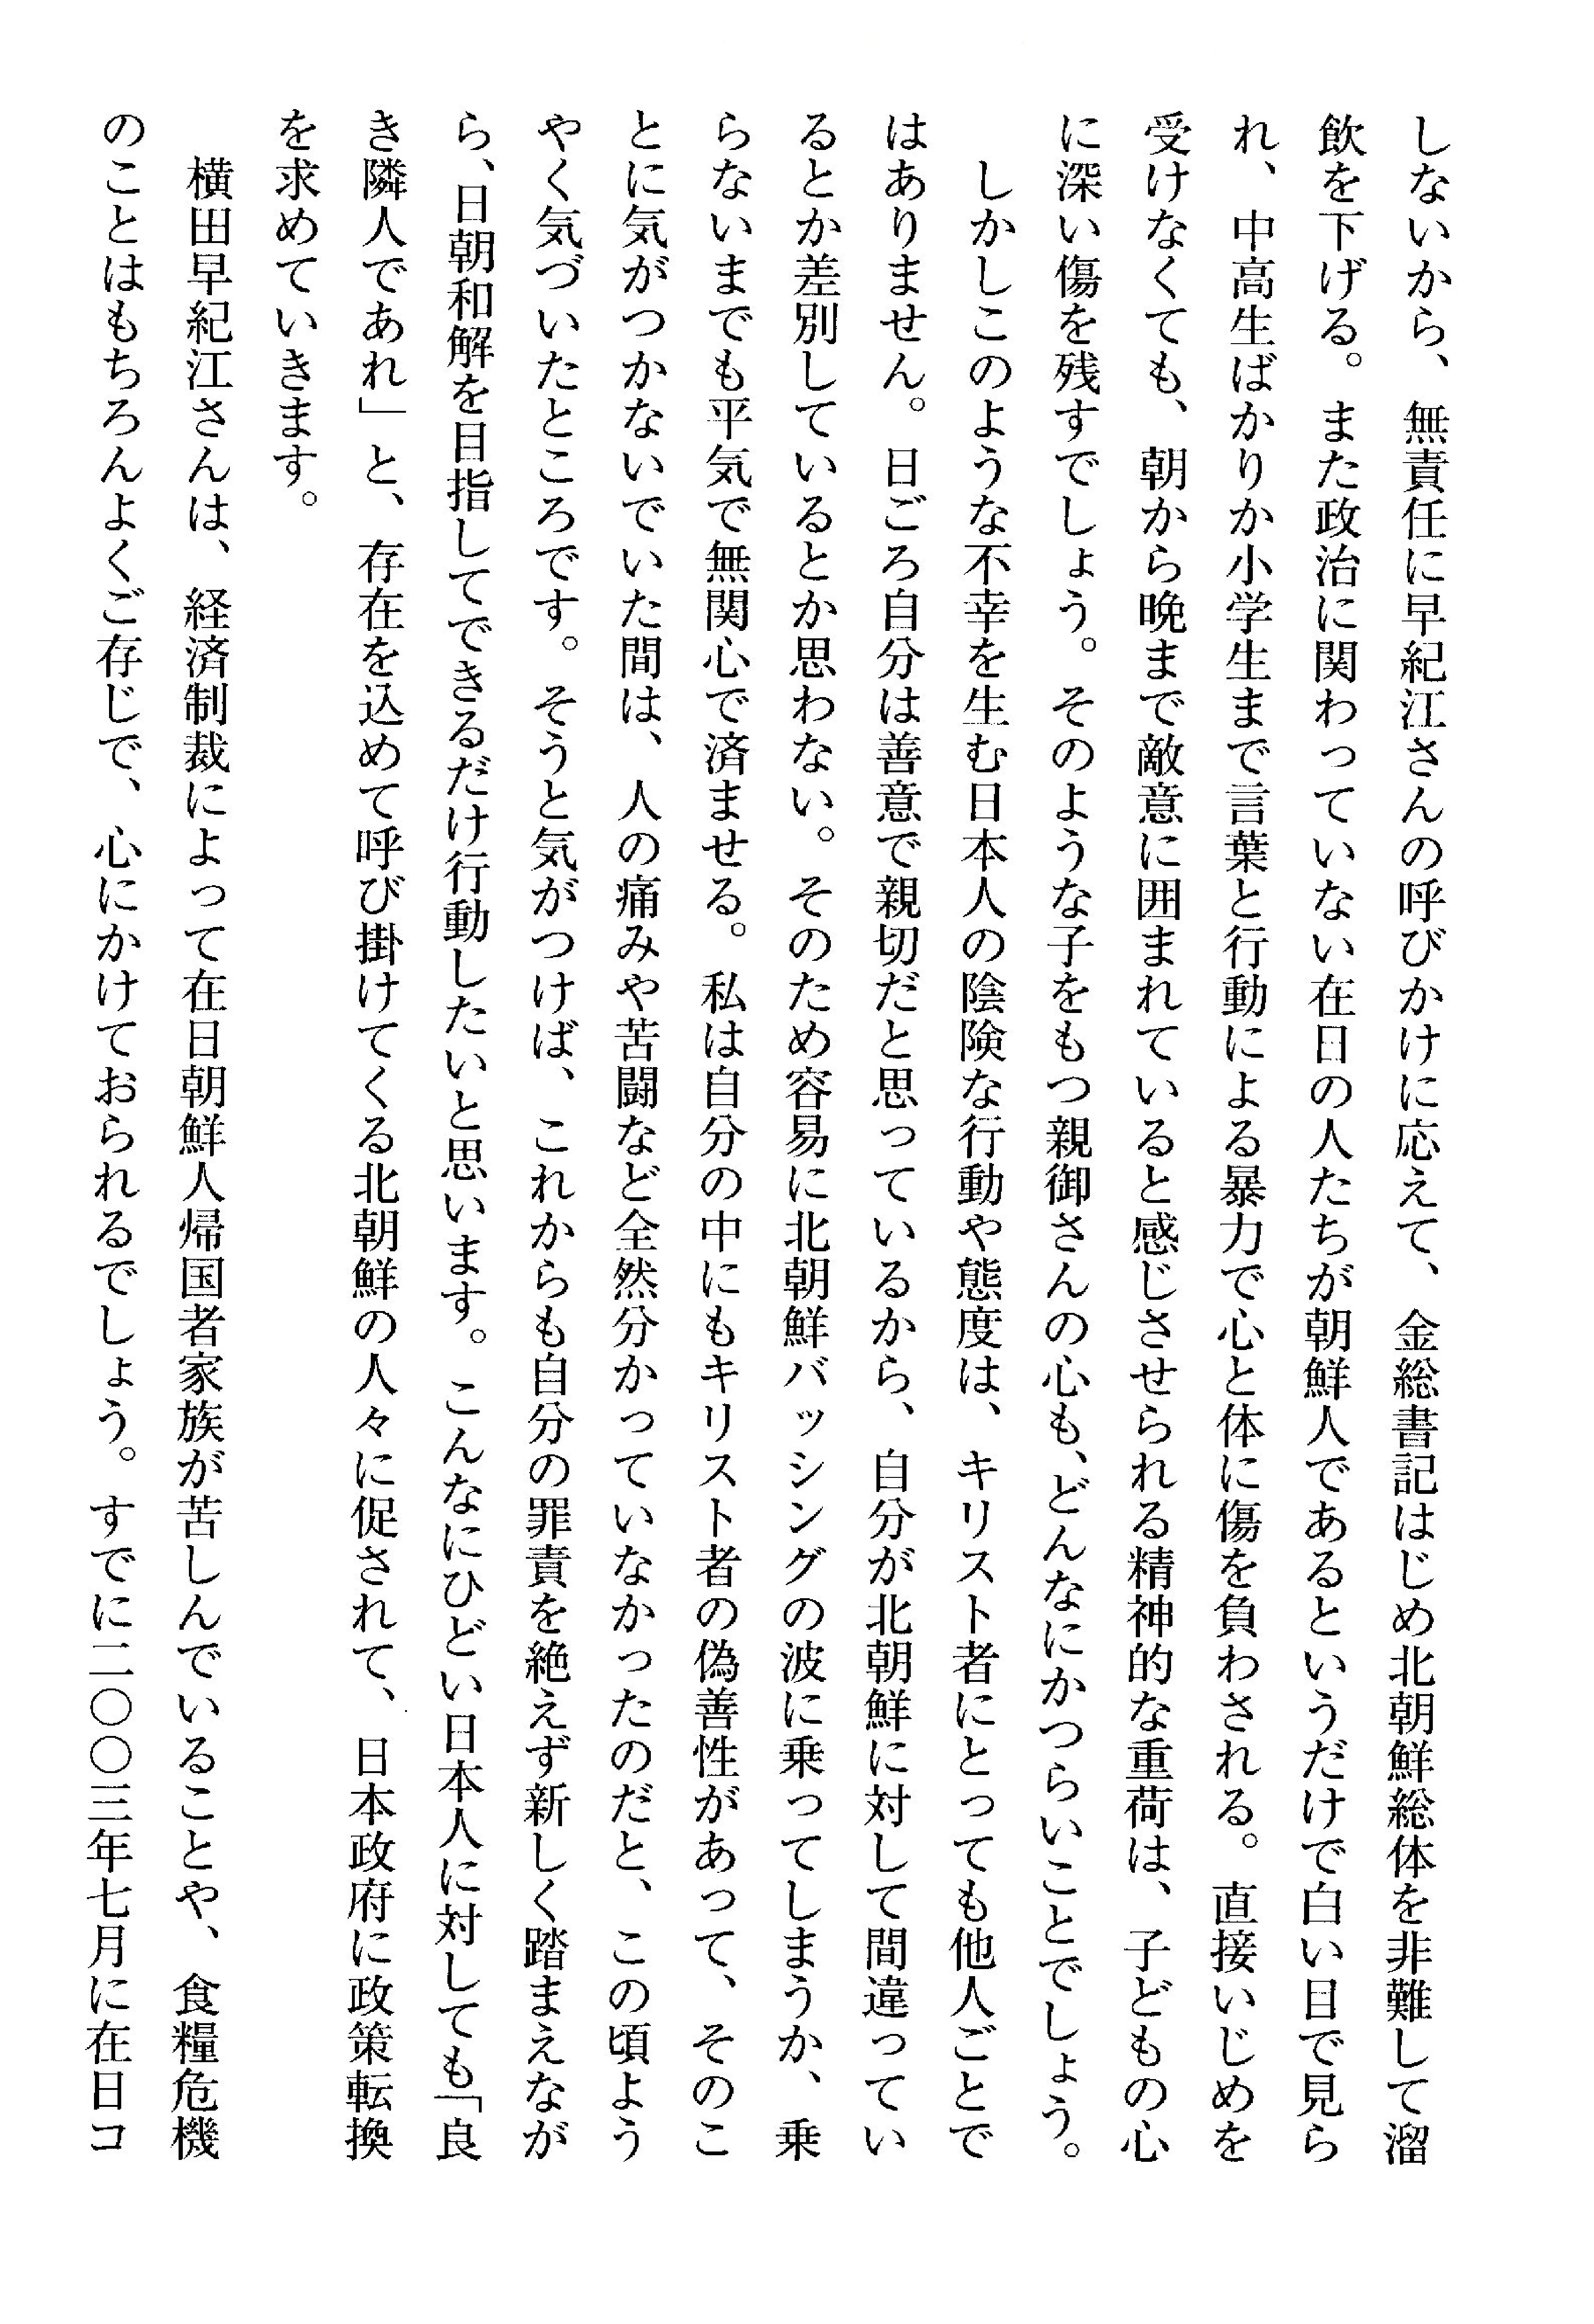 しないから、無責任に早紀江さんの呼びかけに応えて、金総書記はじめ北朝鮮総体を非難して溜
飲を下げる。また政治に関わっていない在日の人たちが朝鮮人であるというだけで白い目で見ら
れ、中高生ばかりか小学生まで言葉と行動による暴力で心と体に傷を負わされる。直接いじめを
受けなくても、朝から晩まで敵意に囲まれていると感じさせられる精神的な重荷は、子どもの心
に深い傷を残すでしょう。そのような子をもつ親御さんの心も、どんなにかつらいことでしょう。
しかしこのような不幸を生む日本人の陰険な行動や態度は、キリスト者にとっても他人ごとで
はありません。日ごろ自分は善意で親切だと思っているから、自分が北朝鮮に対して間違ってい
るとか差別しているとか思わない。そのため容易に北朝鮮バッシングの波に乗ってしまうか、乗
らないまでも平気で無関心で済ませる。私は自分の中にもキリスト者の偽善性があって、そのこ
とに気がつかないでいた間は、人の痛みや苦闘など全然分かっていなかったのだと、この頃よう
やく気づいたところです。そうと気がつけば、これからも自分の罪責を絶えず新しく踏まえなが
ら、日朝和解を目指してできるだけ行動したいと思います。こんなにひどい日本人に対しても「良
き隣人であれ」と、存在を込めて呼び掛けてくる北朝鮮の人々に促されて、日本政府に政策転換
を求めていきます。
横田早紀江さんは、経済制裁によって在日朝鮮人帰国者家族が苦しんでいることや、食糧危機
のことはもちろんよくご存じで、心にかけておられるでしょう。すでに二〇〇三年七月に在日コ